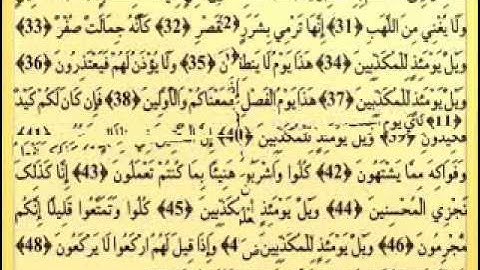 وَلَا يُغْنِي مِنَ اللَّهَبِ ﴿31﴾ إِنَّهَا تَرْمِي بِشَرَرٍ 2 قَصْرِ ﴿32﴾ كَأَنَّهُ جِمَالَتٌ صُفْرٌ ﴿33﴾
وَيْلٌ يَوْمَئِذٍ لِلْمُكَذِّبِينَ ﴿34﴾ هَذَا يَوْمُ لَا يَنطِ نَ ﴿35﴾ وَلَا يُؤْذَنُ لَهُمْ فَيَعْتَذِرُونَ ﴿36﴾
وَيْلٌ يَوْمَئِذٍ لِلْمُكَذِّبِينَ ﴿37﴾ هَذَا يَوْمُ الْفَصْلِ جَمَعْنَاكُمْ وَالْأَوَّلِينَ ﴿38﴾ فَإِن كَانَ لَكُمْ كَيْدٌ
﴿11﴾ يوم
فَكِيدُونِ ﴿39﴾ وَيْلٌ يَوْمَئِذٍ لِلْمُكَذِّبِينَ ﴿40﴾ ﴿41﴾
وَفَوَاكِهَ مِمَّا يَشْتَهُونَ ﴿42﴾ كُلُوا وَاشْرَبُو هَنِيئًا بِمَا كُنتُمْ تَعْمَلُونَ ﴿43﴾ إِنَّا كَذَلِكَ
نَجْزِي الْمُحْسِنِينَ ﴿44﴾ وَيْلٌ يَوْمَئِذٍ لِلْمُكَذِّبِينَ ﴿45﴾ كُلُوا وَتَمَتَّعُوا قَلِيلًا إِنَّكُم
مُّجْرِمُونَ ﴿46﴾ وَيْلٌ يَوْمَئِذٍ لِلْمُكَذِّبِينَ 4﴾ وَإِذَا قِيلَ لَهُمُ ارْكَعُوا لَا يَرْكَعُونَ ﴿48﴾